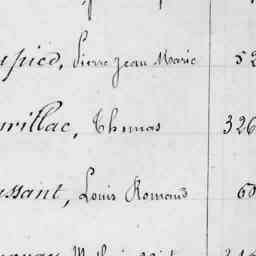 upied, Pierre Jean Marie 52
urillac, Thomas 326
ussant, Louis Romand 60